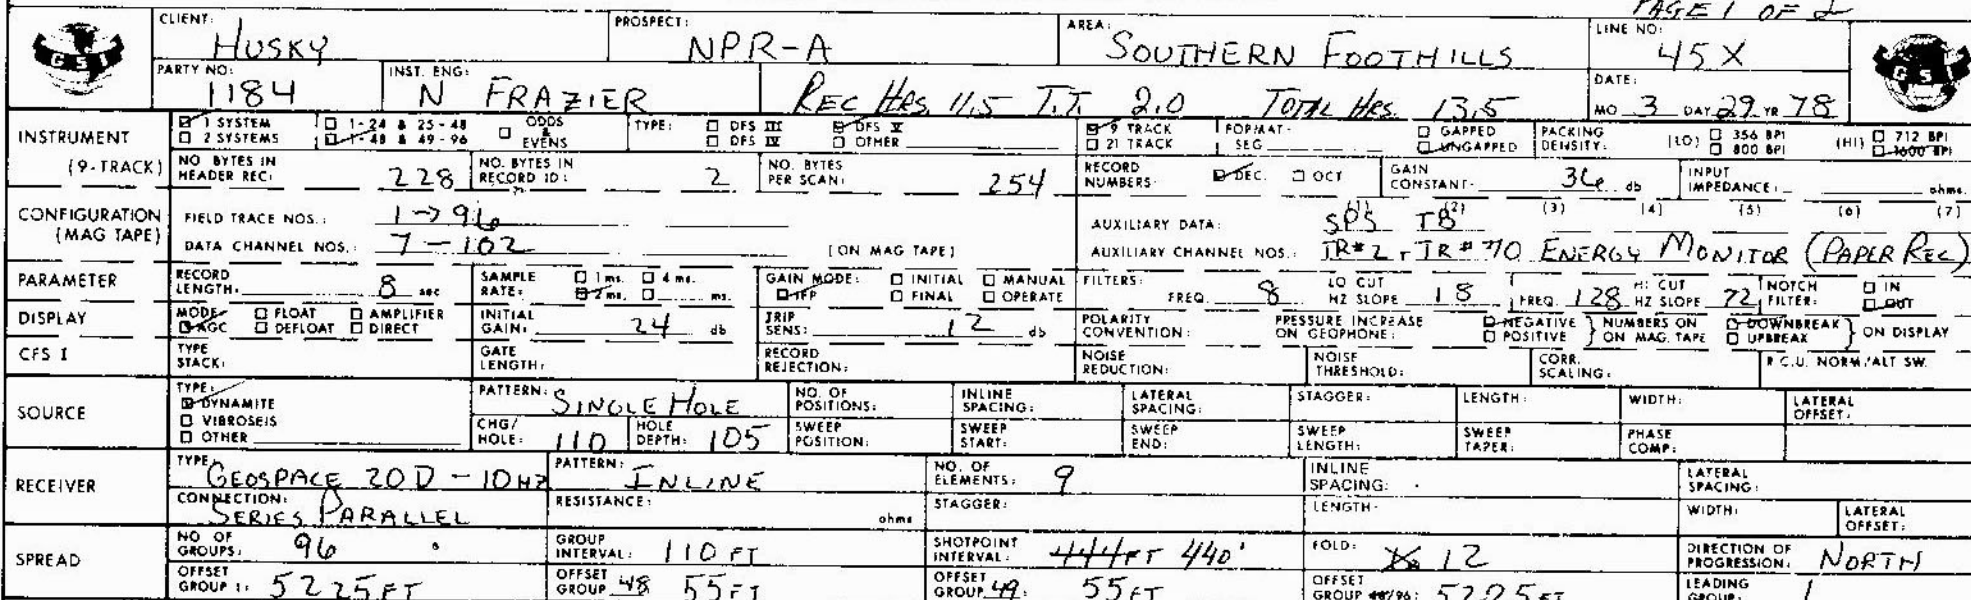 PAGE 1 OF 2
CLIENT: HUSKY PROSPECT: NPR-A AREA: SOUTHERN FOOTHILLS LINE NO: 45X
GSI GSI
PARTY NO: 1184 INST. ENG: N FRAZIER REC HRS. 11.5 T.T. 2.0 TOTAL HRS. 13.5 DATE: MO 3 DAY 29 YR 78
INSTRUMENT 1 SYSTEM 1-24 & 25-48 ODDS & EVENS TYPE: DFS III DFS V 9 TRACK FORMAT- GAPPED PACKING DENSITY: (LO) 356 BPI (HI) 712 BPI
2 SYSTEMS 1-48 & 49-96 DFS IV OTHER 21 TRACK SEG UNGAPPED 800 BPI 1600 BPI
(9-TRACK) NO. BYTES IN HEADER REC: 228 NO. BYTES IN RECORD ID: 2 NO. BYTES PER SCAN: 254 RECORD NUMBERS- DEC. OCT GAIN CONSTANT- 36 db INPUT IMPEDANCE: ohms.
CONFIGURATION (MAG TAPE) FIELD TRACE NOS.: 1→96 AUXILIARY DATA: (1) SPS (2) TB (3) (4) (5) (6) (7)
DATA CHANNEL NOS.: 7-102 (ON MAG TAPE) AUXILIARY CHANNEL NOS.: TR#2, TR#70 ENERGY MONITOR (PAPER REC)
PARAMETER RECORD LENGTH: 8 sec SAMPLE RATE: 1 ms. 4 ms. 2 ms. ms. GAIN MODE: INITIAL MANUAL IFP FINAL OPERATE FILTERS: FREQ. 8 LO CUT HZ SLOPE 18 FREQ. 128 HI CUT HZ SLOPE 72 NOTCH FILTER: IN OUT
DISPLAY MODE- FLOAT AMPLIFIER AGC DEFLOAT DIRECT INITIAL GAIN: 24 db TRIP SENS: 12 db POLARITY CONVENTION: PRESSURE INCREASE ON GEOPHONE: NEGATIVE POSITIVE } NUMBERS ON ON MAG. TAPE DOWNBREAK UPBREAK } ON DISPLAY
CFS I TYPE STACK: GATE LENGTH: RECORD REJECTION: NOISE REDUCTION: NOISE THRESHOLD: CORR. SCALING: R.C.U. NORM./ALT SW.
SOURCE TYPE: DYNAMITE VIBROSEIS OTHER PATTERN: SINGLE HOLE NO. OF POSITIONS: INLINE SPACING: LATERAL SPACING: STAGGER: LENGTH: WIDTH: LATERAL OFFSET:
CHG/ HOLE: 110 HOLE DEPTH: 105 SWEEP POSITION: SWEEP START: SWEEP END: SWEEP LENGTH: SWEEP TAPER: PHASE COMP:
RECEIVER TYPE: GEOSPACE 20D - 10HZ PATTERN: INLINE NO. OF ELEMENTS: 9 INLINE SPACING: LATERAL SPACING:
CONNECTION: SERIES PARALLEL RESISTANCE: ohms STAGGER: LENGTH- WIDTH: LATERAL OFFSET:
SPREAD NO OF GROUPS: 96 GROUP INTERVAL: 110 FT SHOTPOINT INTERVAL: 444FT 440' FOLD: 12 DIRECTION OF PROGRESSION: NORTH
OFFSET GROUP 1: 5225FT OFFSET GROUP 48 55FT OFFSET GROUP 49: 55FT OFFSET GROUP 96: 5225FT LEADING GROUP: 1